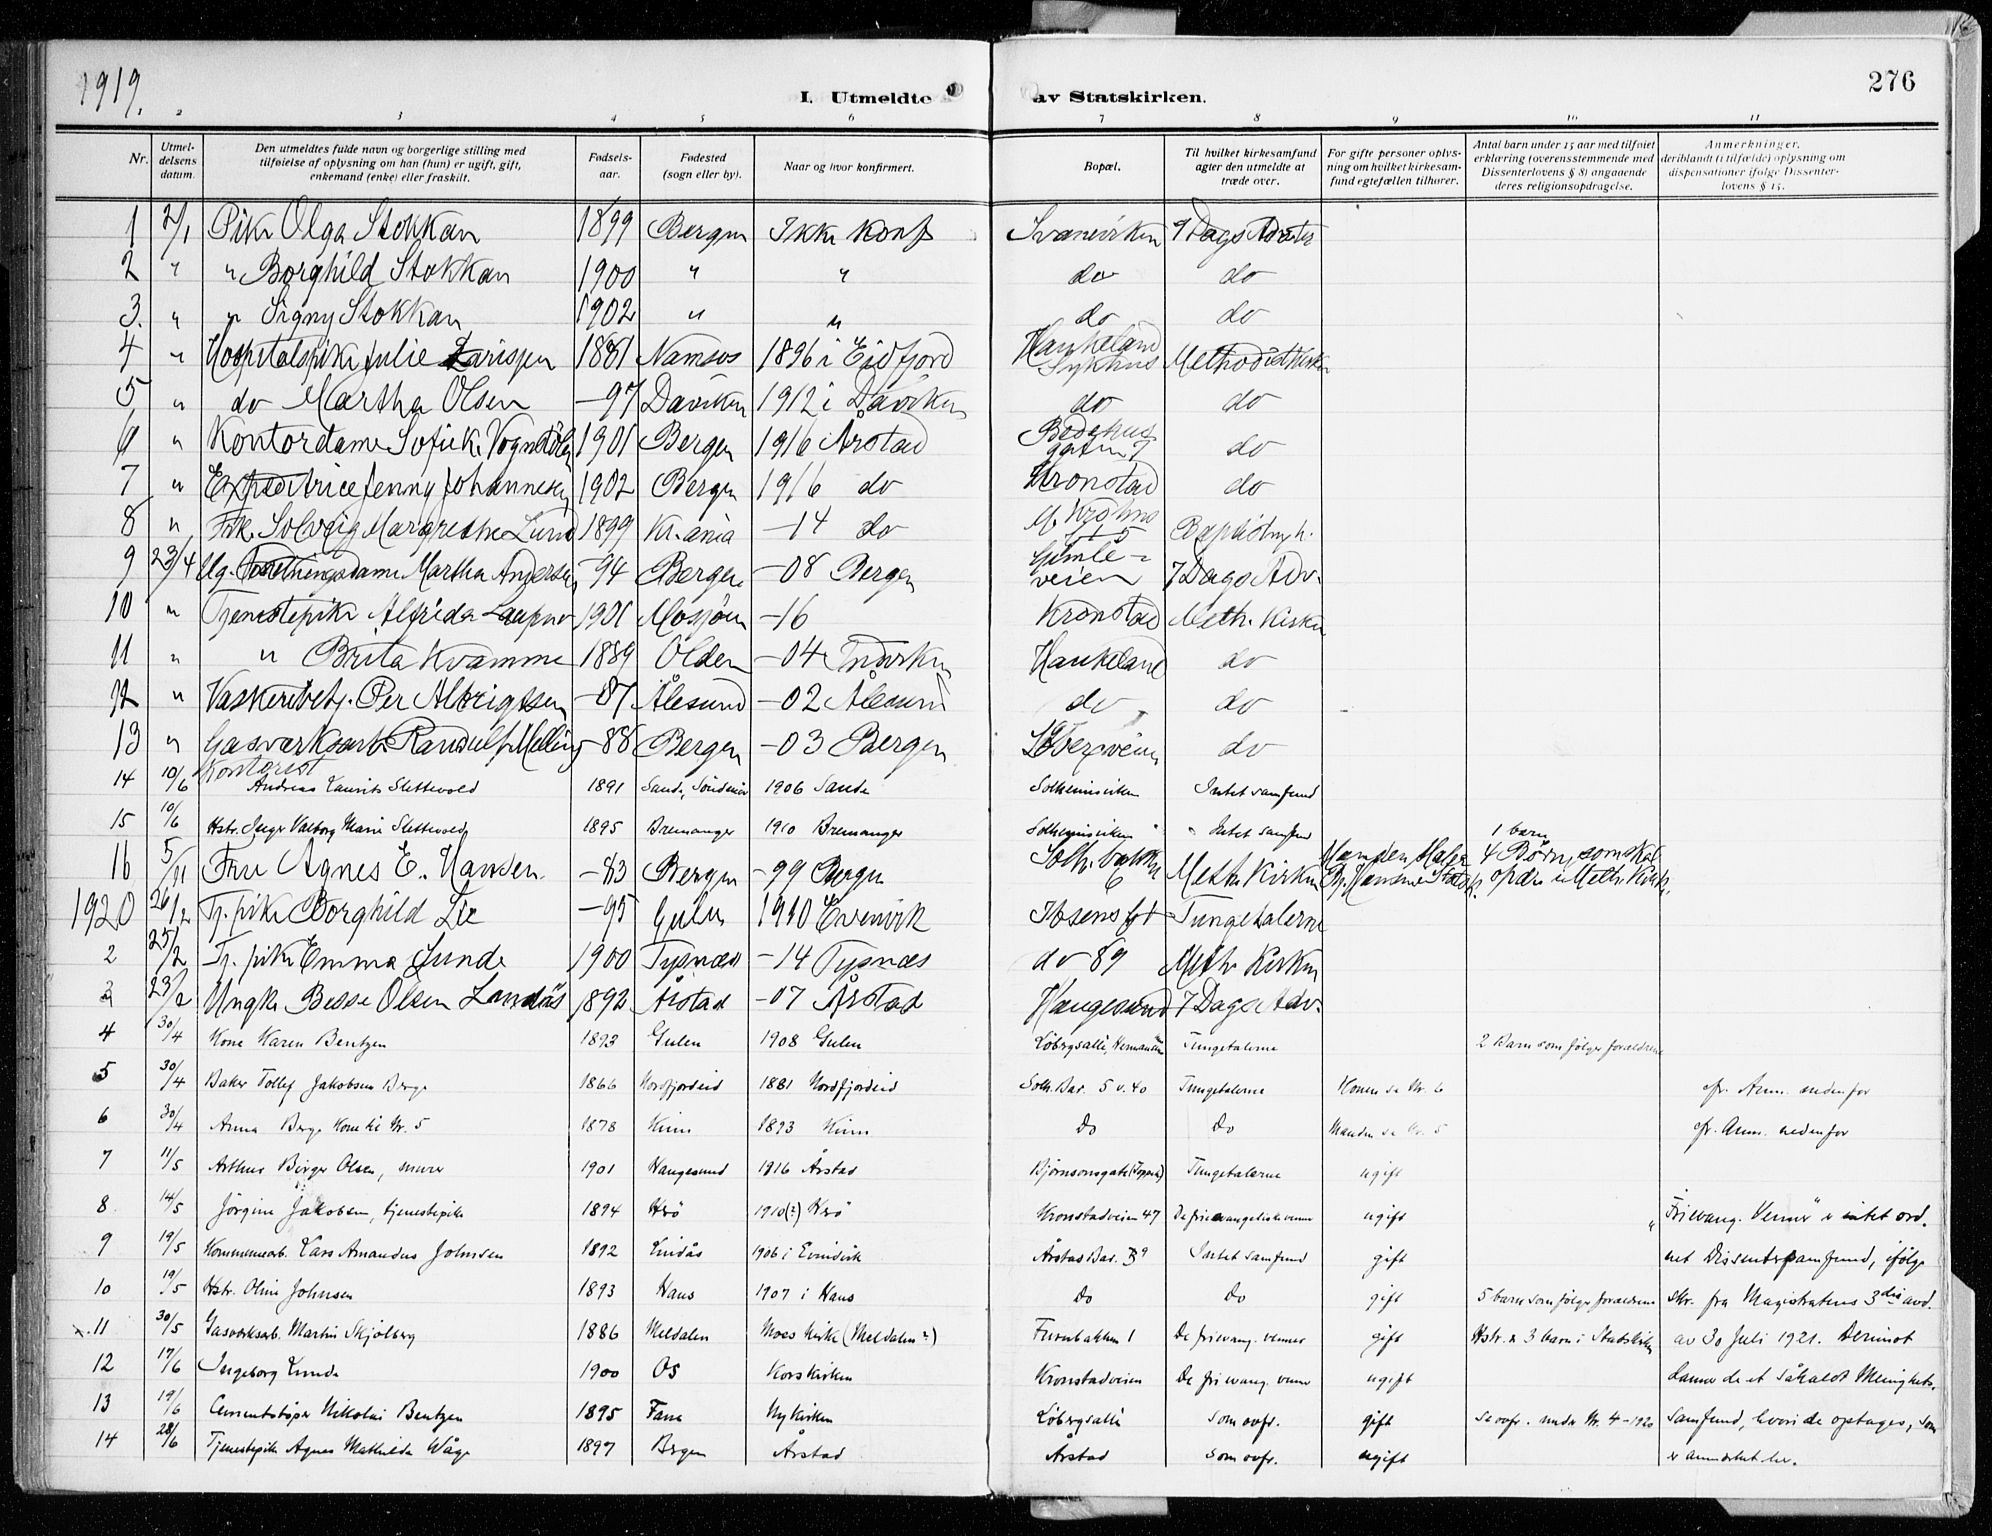 1919.
I. Utmeldte av Statskirken.
276
1 2 3 4 5 6 7 8 9 10 11
Nr.
Utmeldelsens datum.
Den utmeldtes fulde navn og borgerlige stilling med tilføielse af oplysning om han (hun) er ugift, gift, enkemand (enke) eller fraskilt.
Fødselsaar.
Fødested (sogn eller by).
Naar og hvor konfirmert.
Bopæl.
Til hvilket kirkesamfund agter den utmeldte at træde over.
For gifte personer oplysning om hvilket kirkesamfund egtefællen tilhører.
Antal barn under 15 aar med tilføiet erklæring (overensstemmende med Dissenterlovens § 8) angaaende deres religionsopdragelse.
Anmerkninger, deriblandt (i tilfælde) oplysning om dispensationer ifølge Dissenterlovens § 15.
1 2/1 Pike Olga Stokkan 1899 Bergen Ikke konf Svaneviken 7 Dags Advter
2 " " Borghild Stokkan 1900 " " do do
3. " " Signy Stokkan 1902 " " do do
4 " Hospitalspike Julie 1881 Namsos 1896 i Eidfjord Haukeland Sykhus Methodistkirken
5 " do Martha Olsen -97 Daviken 1912 i Daviken do do
6 " Kontordame Sofie K. 1901 Bergen 1916 Årstad Bedehusgaten 7 do
7 " Expeditrice Jenny Johannesen 1902 Bergen 1916 do Kronstad do
8 " Frk. Solveig Margrethe Lund 1899 Kr.ania -14 do M. Krohns gt 5
9 23/4 Ug. Forretningsdame Martha Andersen -94 Bergen -08 Bergen Gimleveien 7 Dags Adv.
10 " Tjenestepike Alfrida 1901 Mosjøen -16 Kronstad Meth. Kirken
11 " " Brita Kvamme 1889 Olden -04 Indviken Haukeland do
12 " Vaskeribetj. Per Albrigtsen -87 Ålesund -02 Ålesund do do
13 " Gasværksarb. Randulf Melling -88 Bergen -03 Bergen do
14 10/6 Kontorist Andreas Laurits Slettevold 1891 Sande, Søndmør 1906 Sande Solheimsviken Intet samfund
15 10/6 Hstr. Inger Valborg Marie Slettevold 1895 Bremanger 1910 Bremanger Solheimsviken " Intet samfund 1 barn
16 5/11 Fru Agnes E. Hansen. -83 Bergen -99 Bergen Solh. bakken 6 Meth. Kirken Manden Maler Hansen Statsk. 4 Børn, som skal opdr. i Meth. Kirk.
1920 26/2 Tj. pike Borghild Lie -95 Gulen 1910 Evenvik Ibsens gt Tungetalerne
2 25/2 Tj. pike Emma Sunde 1900 Tysnæs -14 Tysnæs do 89 Meth. Kirken
3 23/2 Ungk. Besse Olsen Landås 1892 Årstad -07 Årstad Haugesund 7 Dags Adv.
4 30/4 Kone Karen Bentzen 1893 Gulen 1908 Gulen Løbergsallé, Tungetalerne 2 Barn som følger forældrene
5 30/4 Baker Tollef Jakobsen Berge 1866 Nordfjordeid 1881 Nordfjordeid Solh. Bar. 5 v. 40 Tungetalerne Konen se Nr. 6 cfr. Anm. nedenfor
6 30/4 Anna Berge Kone til Nr. 5 1878 Kinn 1893 Kinn Do Do Manden se Nr. 5 cfr. Anm. nedenfor
7 11/5 Arthur Birger Olsen, murer 1901 Haugesund 1916 Årstad Bjørnsonsgate (Toppen) Tungetalerne ugift
8. 14/5 Jörgine Jakobsen, tjenestepike 1894 Herö 1910(?) Herö Kronstadveien 47 De frie evangeliske venner ugift "Frievang. Venner" er intet ord-
9 19/5 Lars Amandus Johnsen 1892 Lindås 1906 i Evindvik Årstad Bar. B 9 Intet samfund gift net Dissentersamfund, ifølge
10 19/5 Hstr. Oline Johnsen 1893 Haus 1907 i Haus Do Do gift 5 barn som følger forældrene skr. fra Magistratens 3die avd.
11 30/5 Gasverksarb. Martin Skjølberg 1886 Meldalen Moes kirke (Meldalen?) Furubakken 1 De frievang. venner gift Hstr. & 3 barn i Statskirken av 30 Juli 1921. Derimot
12 17/6 Ingeborg Lunde 1900 OS Korskirken Kronstadveien De fri evang. venner ugift danner de et såkaldt Menighets-
13 19/6 Cementstöper Nikolai Bentzen 1895 Fana Nykirken Løbergsallé som ovfr. gift se ovfr. under Nr. 4-1920 samfund, hvori de optages, som
14 28/6 Tjenestepike Agnes Mathilde Våge 1897 Bergen Årstad Årstad som ovfr. ugift er anmerket her.